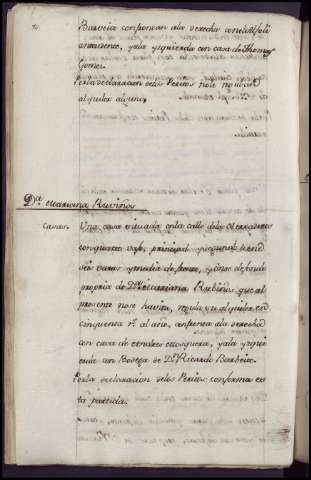 Barveita confrontan ala derecha con el Asoli
antecedente, yala yzquierda con casa de Thomas
Gomes.
Por la declaracion delos Peritos no se reguló el
alquiler alguno.
Dª Mariana Ruviños
Casas. Una casa situada en la calle delos Herradores
con quarto vajo, principal y segundo tiene
seis varas y media de frente, y cinco de fondo
propria de Dª Mariana Rubiños, que al
presente no se havita, regula su alquiler en
cinquenta rˢ al año, confronta ala derecha
con casa de
yala yzquierda
con Bodega de Dⁿ Ricardo Barbeito.
Por la declaracion delos Peritos conforma es
ta partida.